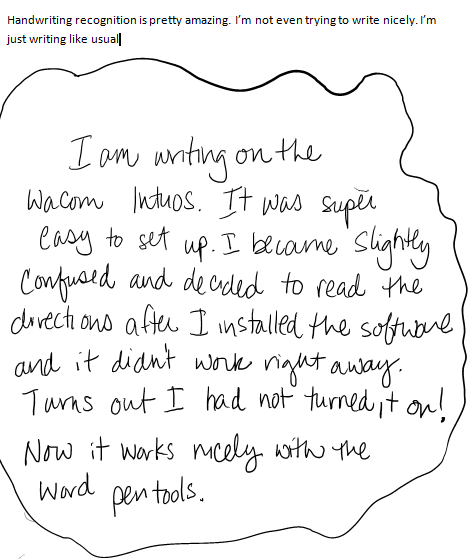 Handwriting recognition is pretty amazing. I'm not even trying to write nicely. I'm
just writing like usual
I am writing on the
Wacom Intuos. It was super
easy to set up. I became slightly
confused and decided to read the
directions after I installed the software
and it didn't work right away.
Turns out I had not turned it on!
Now it works nicely with the
Word pen tools.